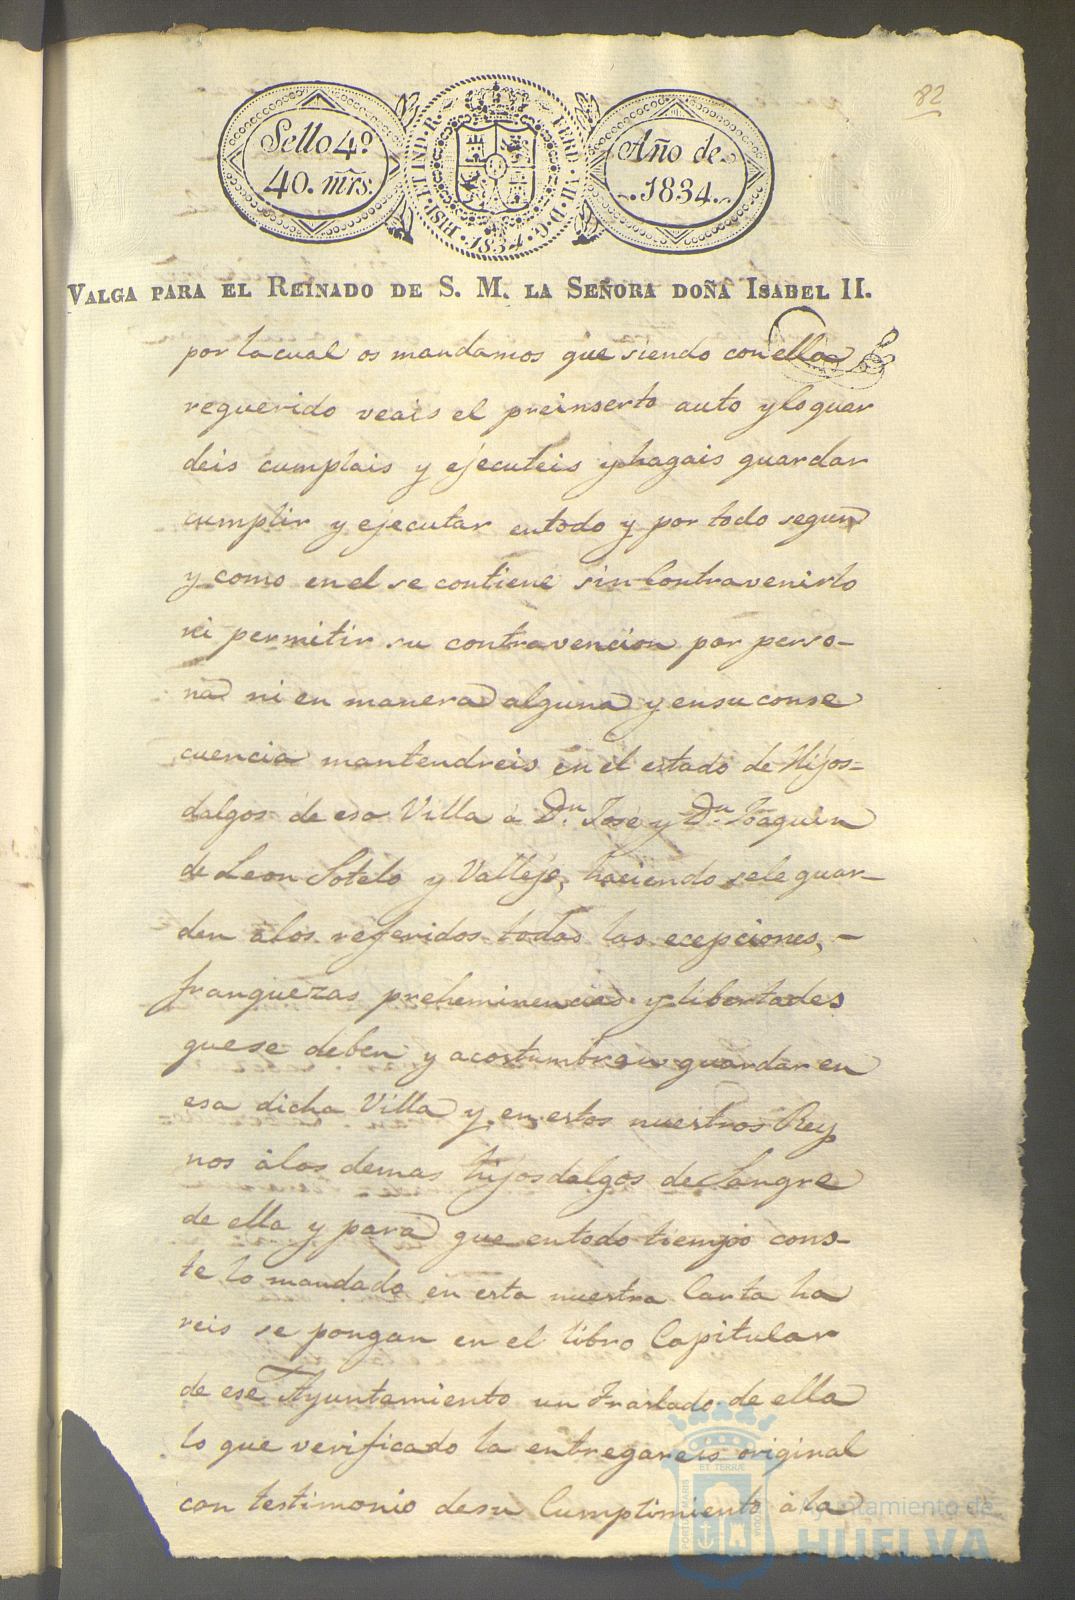 82
Sello 4º
40. mrs.
HISP. ET IND. R. FERD. VII. D.G.
1834
Año de
1834.
VALGA PARA EL REINADO DE S. M. LA SEÑORA DOÑA ISABEL II.
por la cual os mandamos que siendo con ella
requerido veais el preinserto auto y lo guar
deis cumplais y ejecuteis y hagais guardar
cumplir y ejecutar en todo y por todo segun
y como en el se contiene sin contravenirlo
ni permitir su contravencion por perso-
na ni en manera alguna y en su conse
cuencia mantendreis en el estado de Hijos-
dalgos de esa Villa á Dn. José y Dn. Joaquin
de Leon Sotelo y Vallejo, haciendo se le guar-
den a los referidos todas las ecepciones, -
franquezas preheminencias y libertades
que se deben y acostumbran guardar en
esa dicha Villa y en estos nuestros Rey
nos á los demas hijosdalgos de Sangre
de ella y para que en todo tiempo cons-
te lo mandado en esta nuestra Carta ha
reis se pongan en el libro Capitular
de ese Ayuntamiento un traslado de ella
lo que verificado la entregareis original
con testimonio de su Cumplimiento á la
PORTUS MARIS ET TERRÆ CUSTODIA
Ayuntamiento de
HUELVA